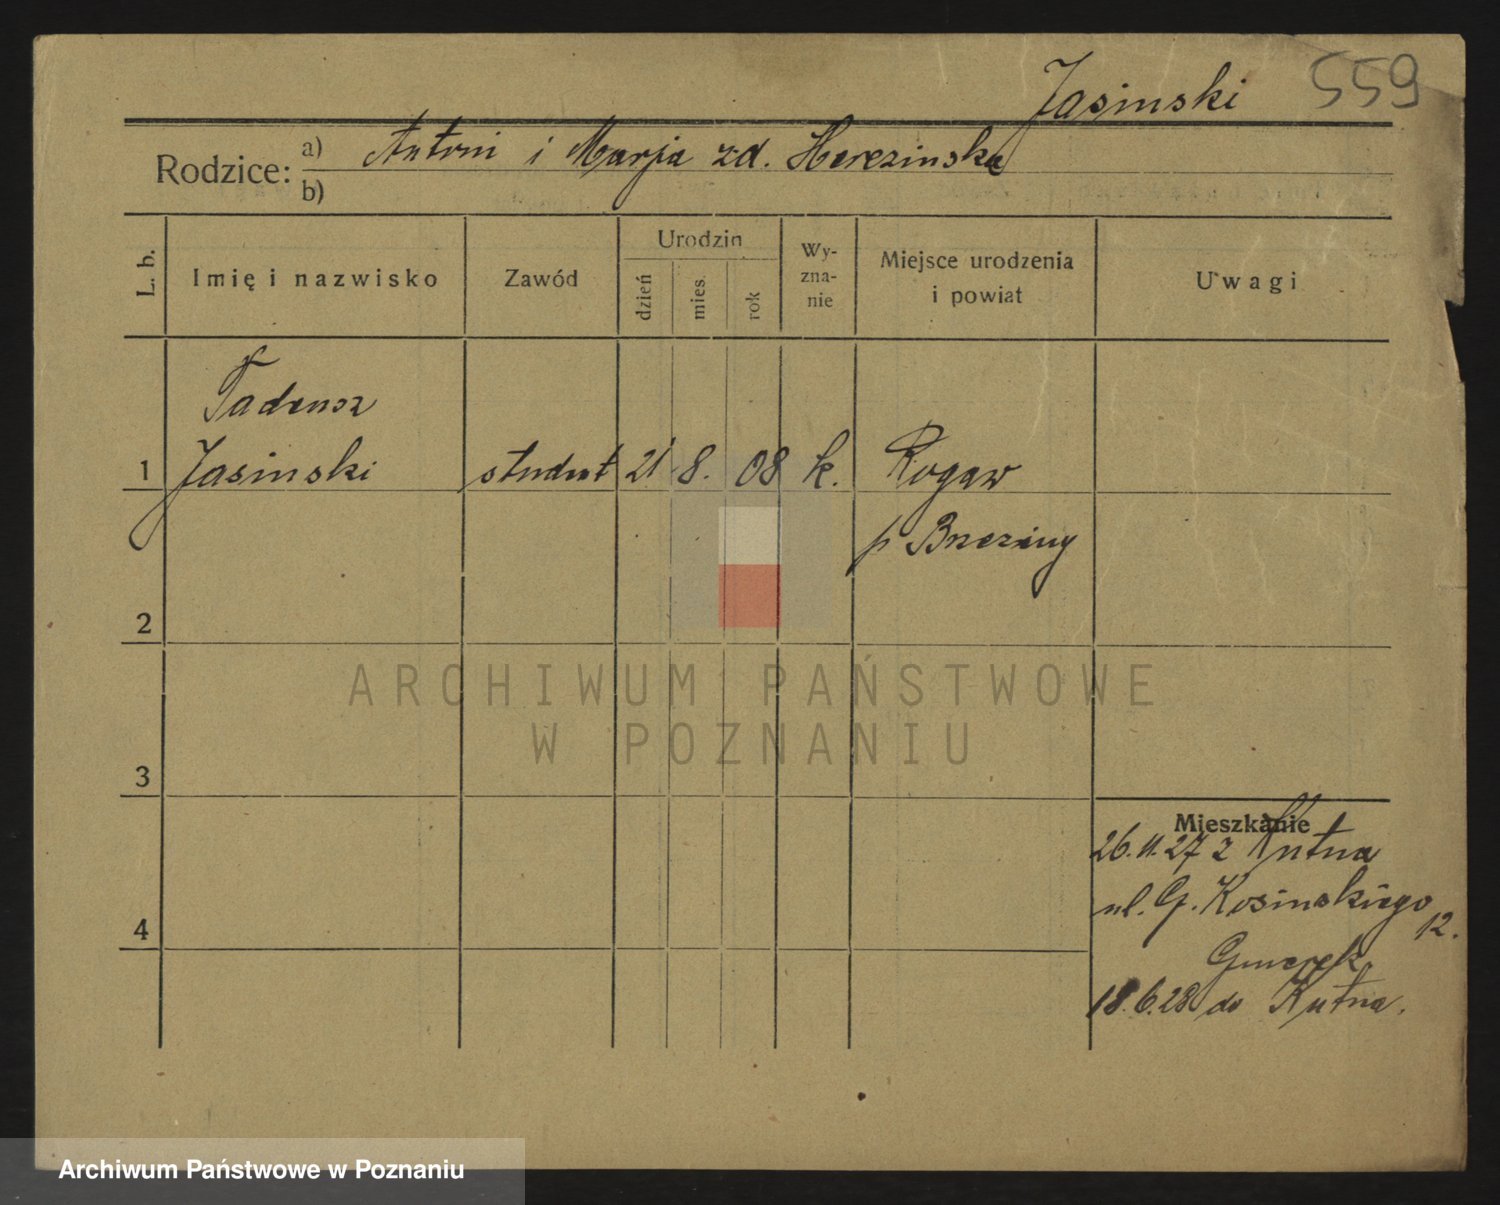 Jasinski 559
Rodzice: a) Antoni i Marja zd. Herezinska
b)
L. b.
Imię i nazwisko
Zawód
Urodzin
dzień
mies.
rok
Wy-
zna-
nie
Miejsce urodzenia
i powiat
Uwagi
Tadeusz
1 Jasinski student 21 8. 08 k. Rogaw
p Brzeziny
2
ARCHIWUM PAŃSTWOWE
W POZNANIU
3
Mieszkanie
26.11.27 z Kutna
ul. G. Kosinskiego
12.
4
18.6.28 do Kutna.
Archiwum Państwowe w Poznaniu